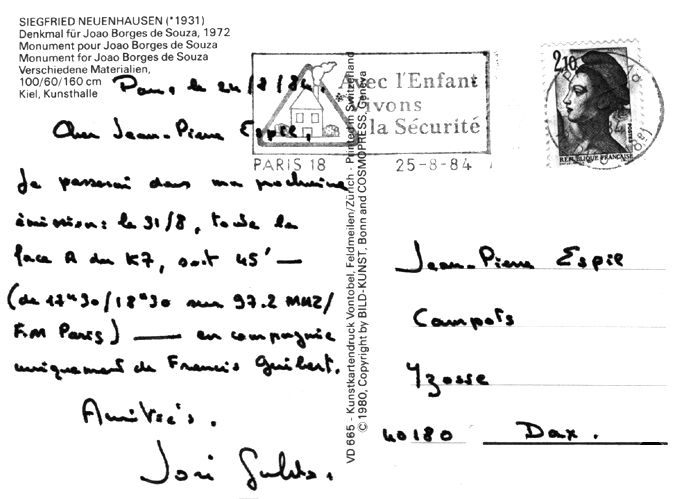 SIEGFRIED NEUENHAUSEN (*1931)
Denkmal für Joao Borges de Souza, 1972
Monument pour Joao Borges de Souza
Monument for Joao Borges de Souza
Verschiedene Materialien,
100/60/160 cm
Kiel, Kunsthalle
Paris, le 24/8/84.
Cher Jean-Pierre Espil,
Je passerai dans ma prochaine
émission: le 31/8, toute la
face A du K7, soit 45' —
(de 17h30/18h30 sur 97.2 MHZ/
F.M Paris) — en compagnie
uniquement de Francis Guibert.
Amitiés.
VD 665 - Kunstkartendruck Vontobel, Feldmeilen/Zürich - Printed in Switzerland
© 1980, Copyright by BILD-KUNST, Bonn and COSMOPRESS, Geneva
Avec l'Enfant
vivons
la Sécurité
PARIS 18 25-8-84
2,10
REPUBLIQUE FRANÇAISE
Jean-Pierre Espil
Campots
Yzosse
40180 Dax.